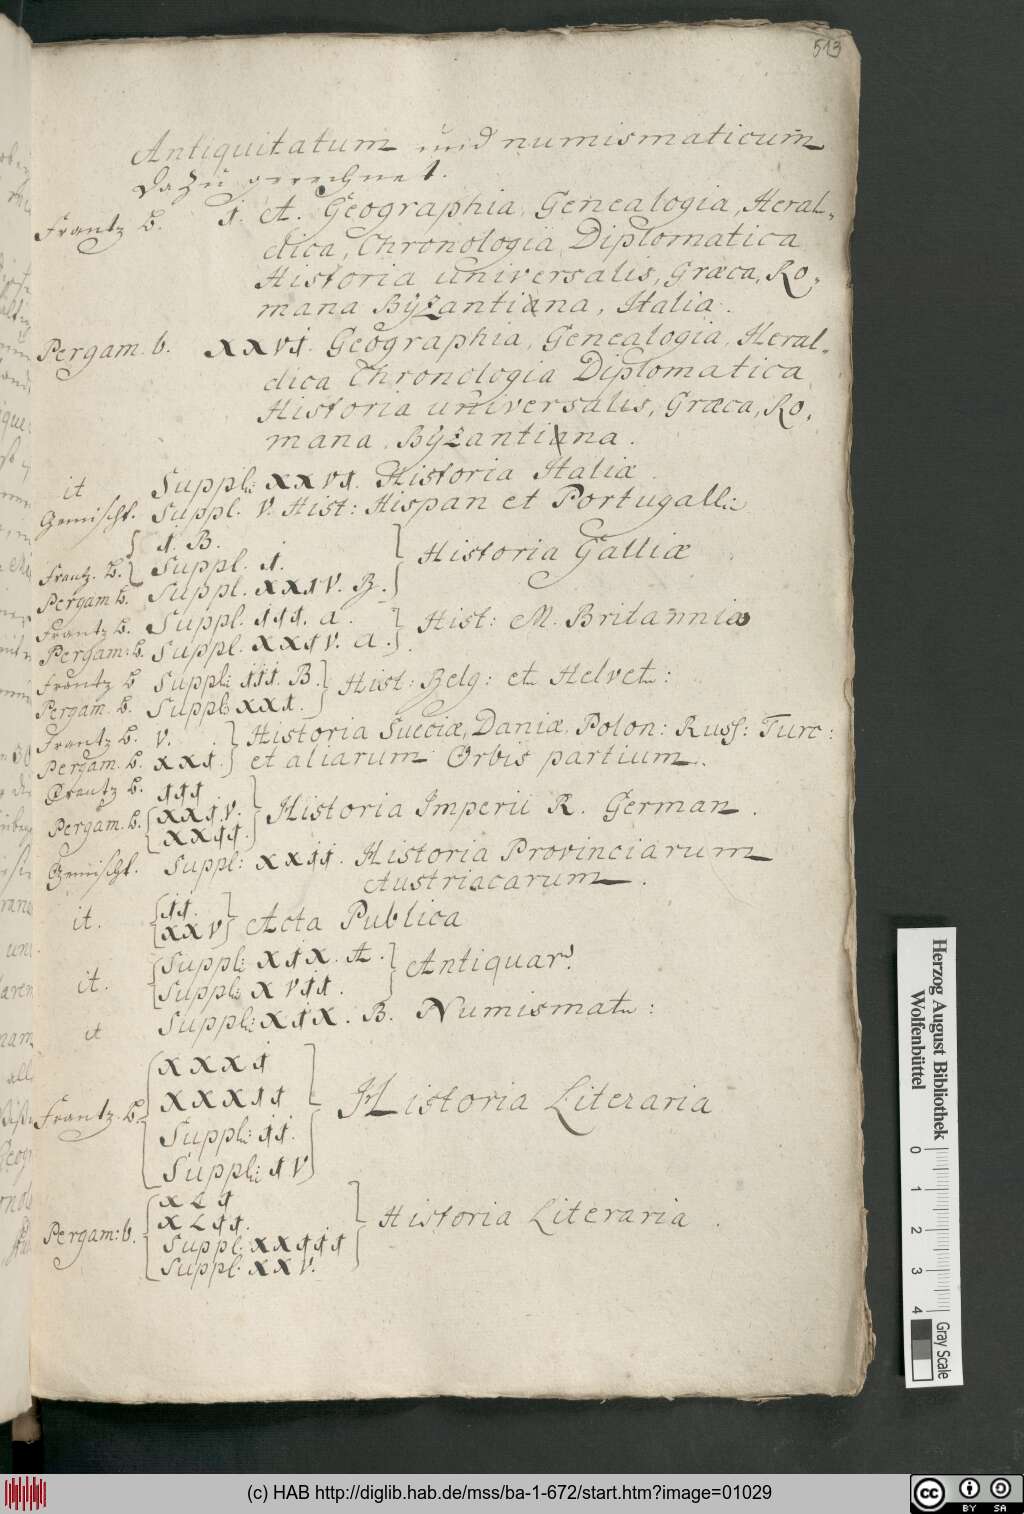 513
Antiquitatum und numismaticum
dazu gerechnet.
Frantz B. I. A. Geographia, Genealogia, Heral-
dica, Chronologia Diplomatica
Historia universalis, Græca, Ro-
mana Byzantina, Italia.
Pergam. b. XXVI. Geographia, Genealogia, Heral-
dica Chronologia Diplomatica
Historia universalis, Græca, Ro-
mana, Byzantina.
it Suppl: XXVI. Historia Italiæ
Gemischt. Suppl. V. Hist: Hispan et Portugall:
Frantz. B. { I. B.
Suppl. I.
Pergam b. Suppl. XXIV. B. } Historia Galliæ
Frantz b. Suppl. III. a.
Pergam: b. Suppl. XXIV. a. } Hist: M. Britannia
Frantz b Suppl: III. B.
Pergam. b. Suppl: XXI. } Hist: Belg: et Helvet:
Frantz b. V.
Pergam. b. XXI. } Historia Sueciæ, Daniæ, Polon: Russ: Turc:
et aliarum Orbis partium.
Frantz b. III
Pergam. b. { XXIV.
XXII. } Historia Imperii R. German.
Gemischt. Suppl: XXII. Historia Provinciarum
Austriacarum.
it. { II.
XXV } Acta Publica
it. { Suppl: XIX. A.
Suppl: XVII. } Antiquar.
it Suppl: XIX. B. Numismat:
Frantz. b. { XXXI
XXXII
Suppl: II.
Suppl: IV } Historia Literaria
Pergam: b. { XLI
XLII.
Suppl. XXIII
Suppl. XXV. } Historia Literaria.
Herzog August Bibliothek
Wolfenbüttel
0 1 2 3 4
Gray Scale
(c) HAB http://diglib.hab.de/mss/ba-1-672/start.htm?image=01029
cc BY SA